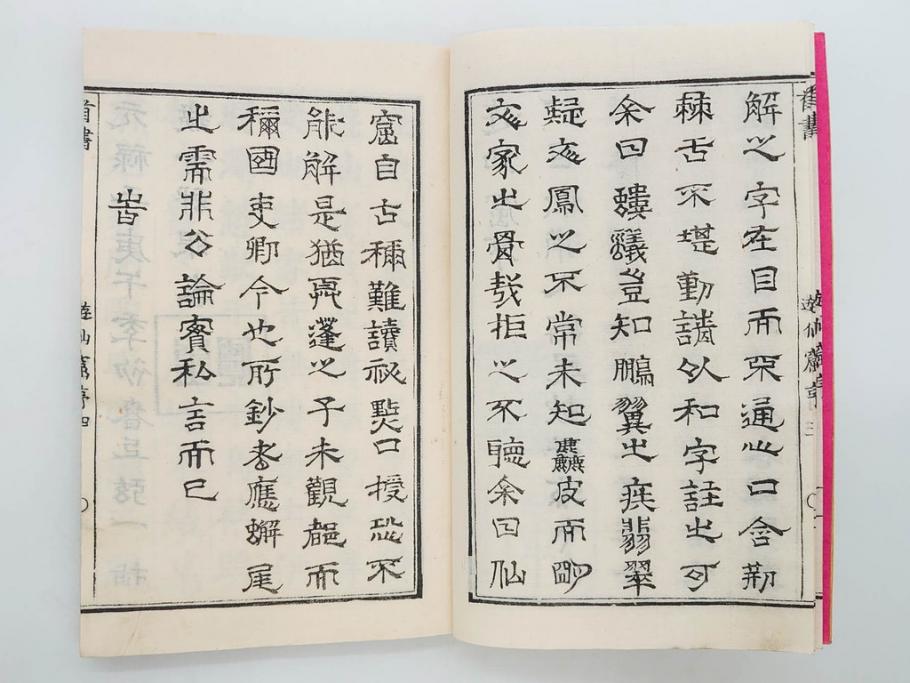 解之字在目而不通心口含荊
棘舌不堪動請以和字註之可
余曰螻蟻豈知鵬翼之疾翡翠
疑文鳳之不常未知麤皮而
文家之骨哉拒之不聽余曰仙
首書 遊仙窟序 三
窟自古稱難讀秘點口授恐不
能解是猶蓬之子未觀而
稱國吏卿今也所鈔者應蠏尾
之需非公論賓私言而已
旹
首書 遊仙窟序 四